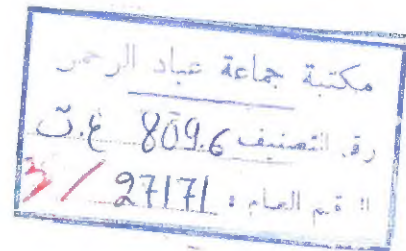 مكتبة جماعة عباد الرحمن
رقم التصنيف 809.6 ع.ت
الرقم العام : 27171 / 3